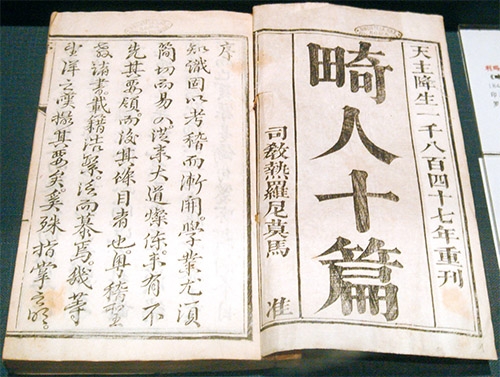 天主降生一千八百四十七年重刊
畸人十篇
司教熱羅尼莫馬 准
序
知識因以考稽而漸開學業尤須
簡切而易入從來大道燦陳未有不
先其要領而後其條目者也粵稽聖
教諸書載籍浩繁泛而慕焉幾等
望洋之嘆其要矣奚殊指掌之明